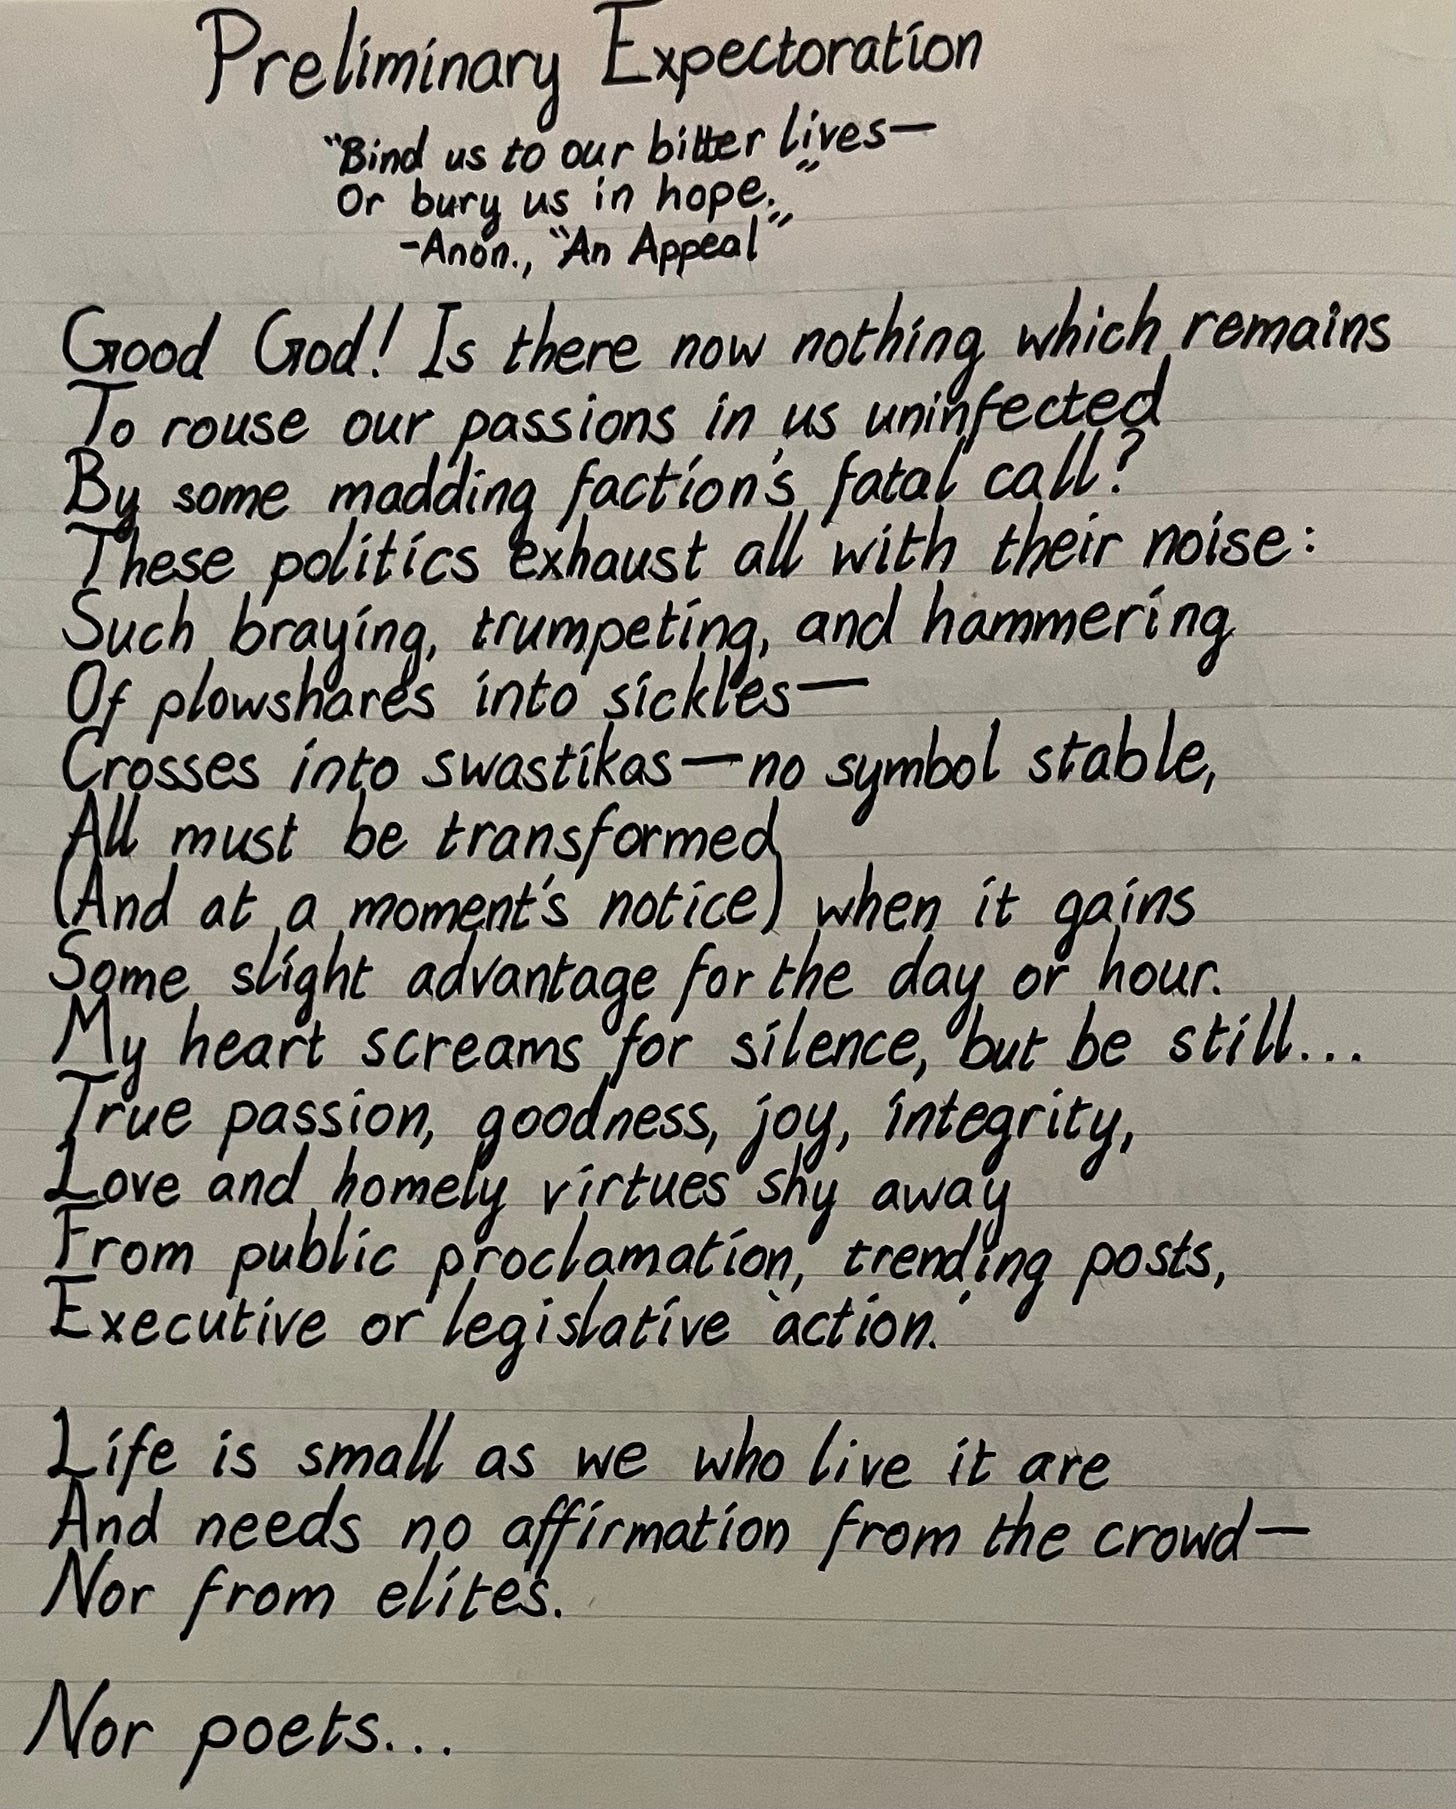 Preliminary Expectoration
"Bind us to our bitter lives—
Or bury us in hope."
-Anon., "An Appeal"
Good God! Is there now nothing which remains
To rouse our passions in us uninfected
By some madding faction's fatal call?
These politics exhaust all with their noise:
Such braying, trumpeting, and hammering
Of plowshares into sickles—
Crosses into swastikas—no symbol stable,
All must be transformed
(And at a moment's notice) when it gains
Some slight advantage for the day or hour.
My heart screams for silence, but be still...
True passion, goodness, joy, integrity,
Love and homely virtues shy away
From public proclamation, trending posts,
Executive or legislative 'action.'
Life is small as we who live it are
And needs no affirmation from the crowd—
Nor from elites.
Nor poets...